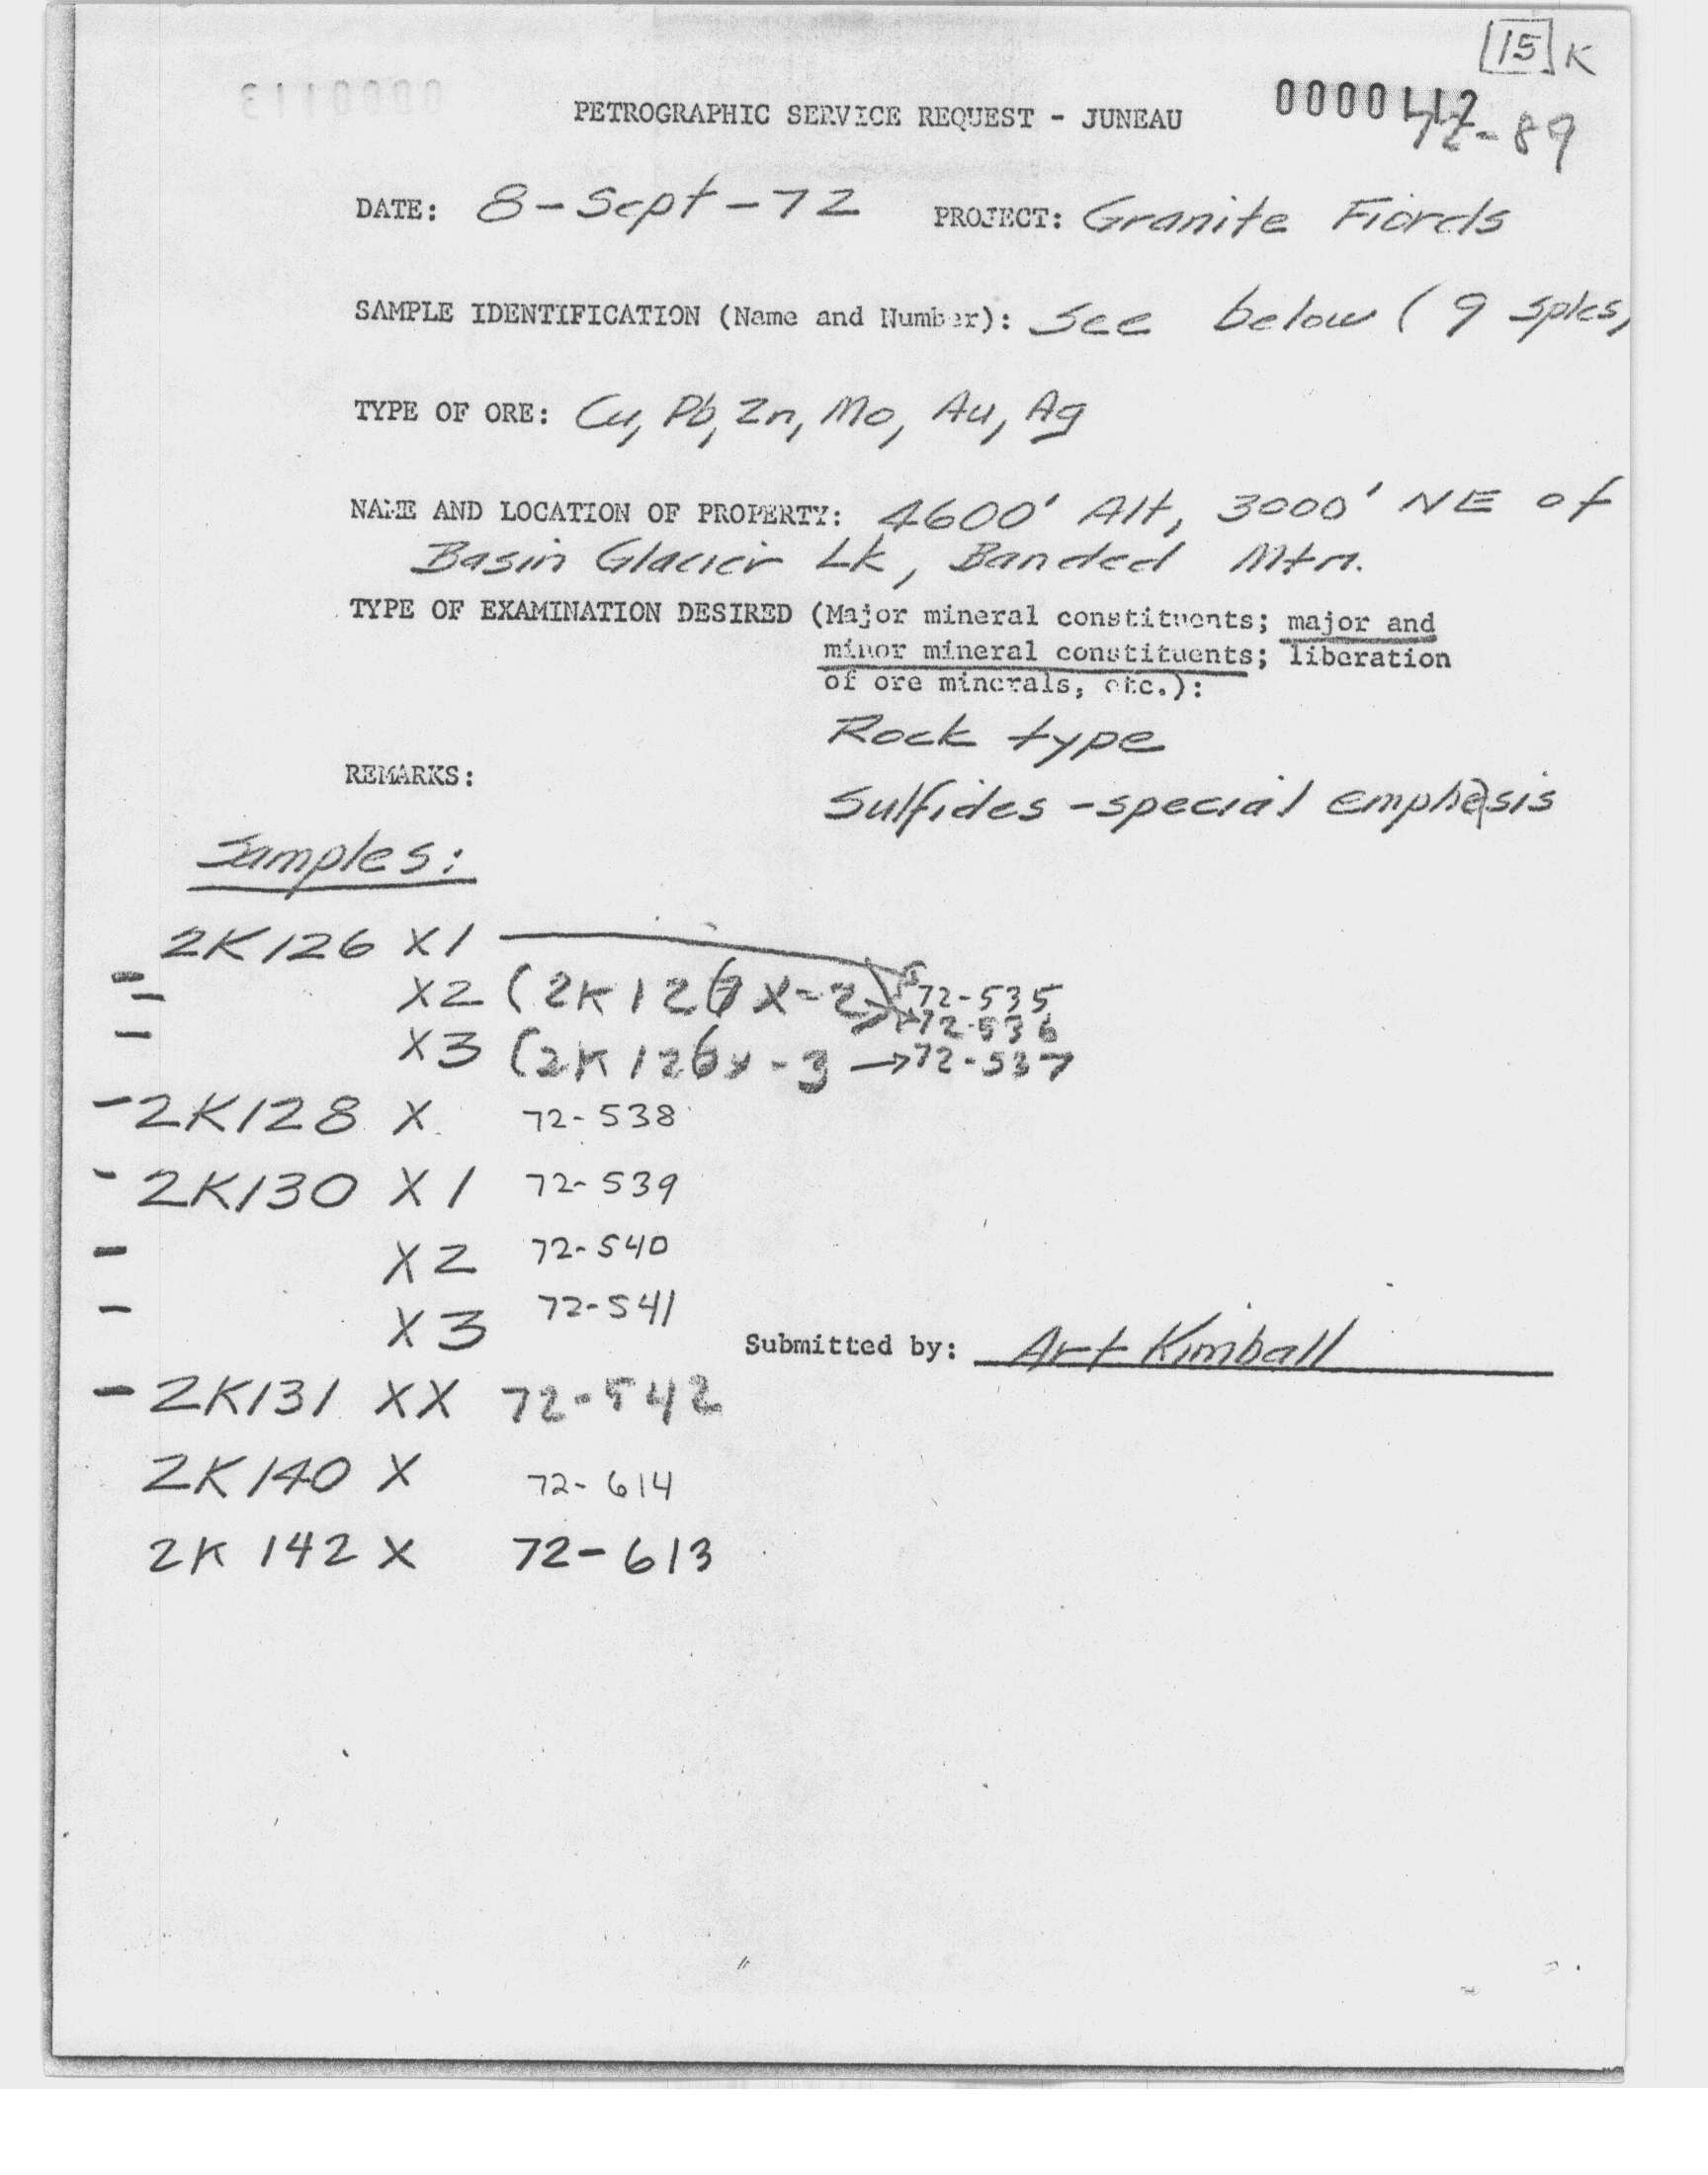 [15] K
PETROGRAPHIC SERVICE REQUEST - JUNEAU 0000112
72-89
DATE: 8-Sept-72 PROJECT: Granite Fiords
SAMPLE IDENTIFICATION (Name and Number): See below (9 sples,
TYPE OF ORE: Cu, Pb, Zn, Mo, Au, Ag
NAME AND LOCATION OF PROPERTY: 4600' Alt, 3000' NE of
Basin Glacier Lk, Banded Mtn.
TYPE OF EXAMINATION DESIRED (Major mineral constituents; major and
minor mineral constituents; liberation
of ore minerals, etc.):
Rock type
REMARKS:
Sulfides - special emphasis
Samples:
2K126 X1
- X2 (2K126X-2 72-535
72-536
- X3 (2K126X-3 → 72-537
- 2K128 X 72-538
- 2K130 X1 72-539
- X2 72-540
- X3 72-541
Submitted by: Art Kimball
- 2K131 XX 72-542
2K140 X 72-614
2K 142 X 72-613